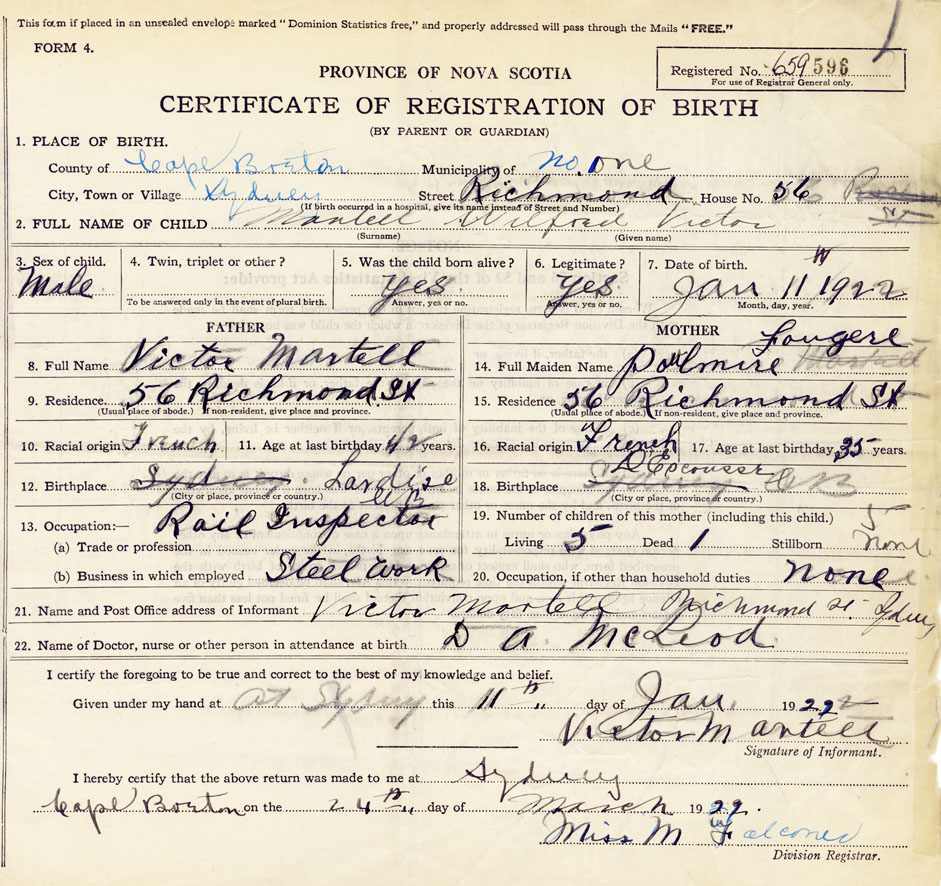 This form if placed in an unsealed envelope marked "Dominion Statistics free," and properly addressed will pass through the Mails "FREE."
FORM 4.
Registered No. 659 596
For use of Registrar General only.
PROVINCE OF NOVA SCOTIA
CERTIFICATE OF REGISTRATION OF BIRTH
(BY PARENT OR GUARDIAN)
1. PLACE OF BIRTH.
County of Cape Breton Municipality of No. one
City, Town or Village Sydney Street Richmond House No. 56
(If birth occurred in a hospital, give its name instead of Street and Number)
2. FULL NAME OF CHILD Martell Wilfred Victor
(Surname) (Given name)
3. Sex of child. 4. Twin, triplet or other? 5. Was the child born alive? 6. Legitimate? 7. Date of birth.
Male yes yes. Jan 11 th 1922
To be answered only in the event of plural birth. Answer, yes or no. Answer, yes or no. Month, day, year.
FATHER
8. Full Name Victor Martell
9. Residence. 56 Richmond St
(Usual place of abode.) If non-resident, give place and province.
10. Racial origin French 11. Age at last birthday 42 years.
12. Birthplace Sydney. Lardise CB
(City or place, province or country.)
13. Occupation:— Rail Inspector
(a) Trade or profession
(b) Business in which employed Steel Work
MOTHER
14. Full Maiden Name Polmire Fougere Martell
15. Residence 56 Richmond St
(Usual place of abode.) If non-resident, give place and province.
16. Racial origin French 17. Age at last birthday 35 years.
18. Birthplace Sydney D'Escousse CB
(City or place, province or country.)
19. Number of children of this mother (including this child.) 5
Living 5 Dead 1 Stillborn None
20. Occupation, if other than household duties none
21. Name and Post Office address of Informant Victor Martell Richmond St. Sydney
22. Name of Doctor, nurse or other person in attendance at birth D A McLeod
I certify the foregoing to be true and correct to the best of my knowledge and belief.
Given under my hand at At Sydney this 11 th day of Jan. 1922
Victor Martell
Signature of Informant.
I hereby certify that the above return was made to me at Sydney
Cape Breton on the 24 th day of March 1922.
Miss M Falconer
Division Registrar.